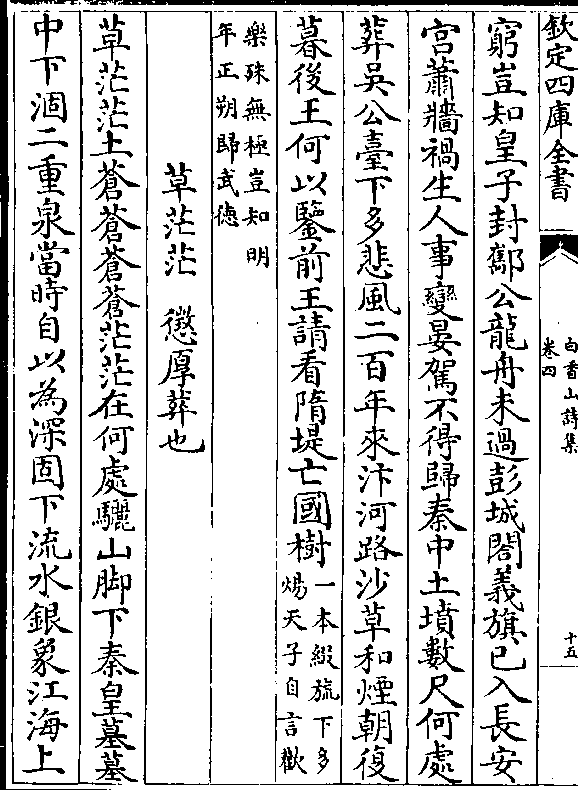 欽定四庫全書
白香山詩集
卷四
十五
窮豈知皇子封酅公龍舟未過彭城閤義旗已入長安
宮蕭牆禍生人事變晏駕不得歸秦中土墳數尺何處
葬吳公臺下多悲風二百年來汴河路沙草和煙朝復
暮後王何以鑒前王請看隋堤亡國樹一本綴旒下多
煬天子自言歡
樂殊無極豈知明
年正朔歸武德
草茫茫　懲厚葬也
草茫茫土蒼蒼蒼蒼茫茫在何處驪山脚下秦皇墓墓
中下涸二重泉當時自以為深固下流水銀象江海上